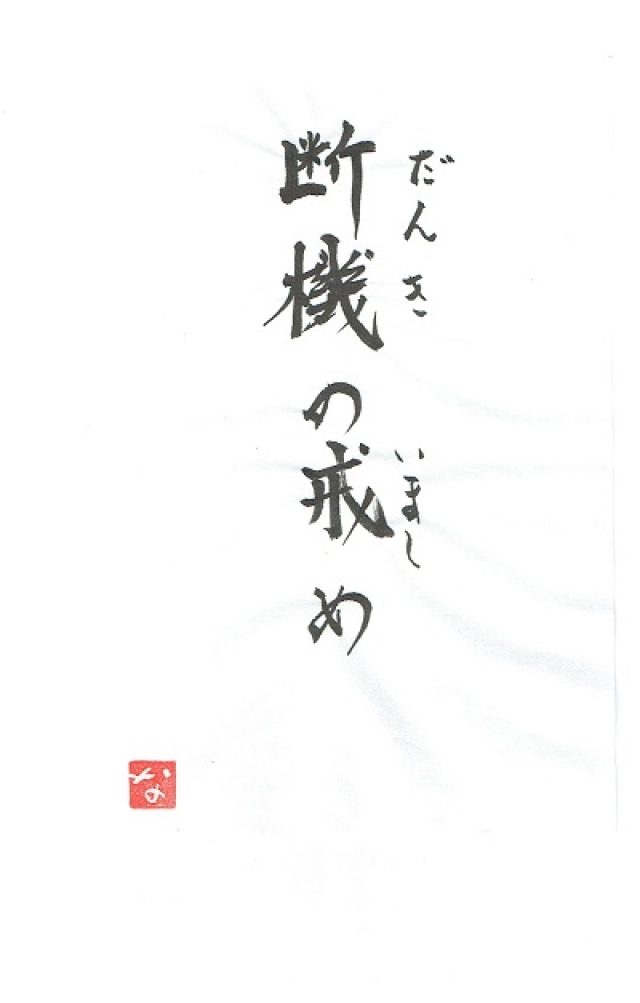 断機の戒め
だんき
いまし
な